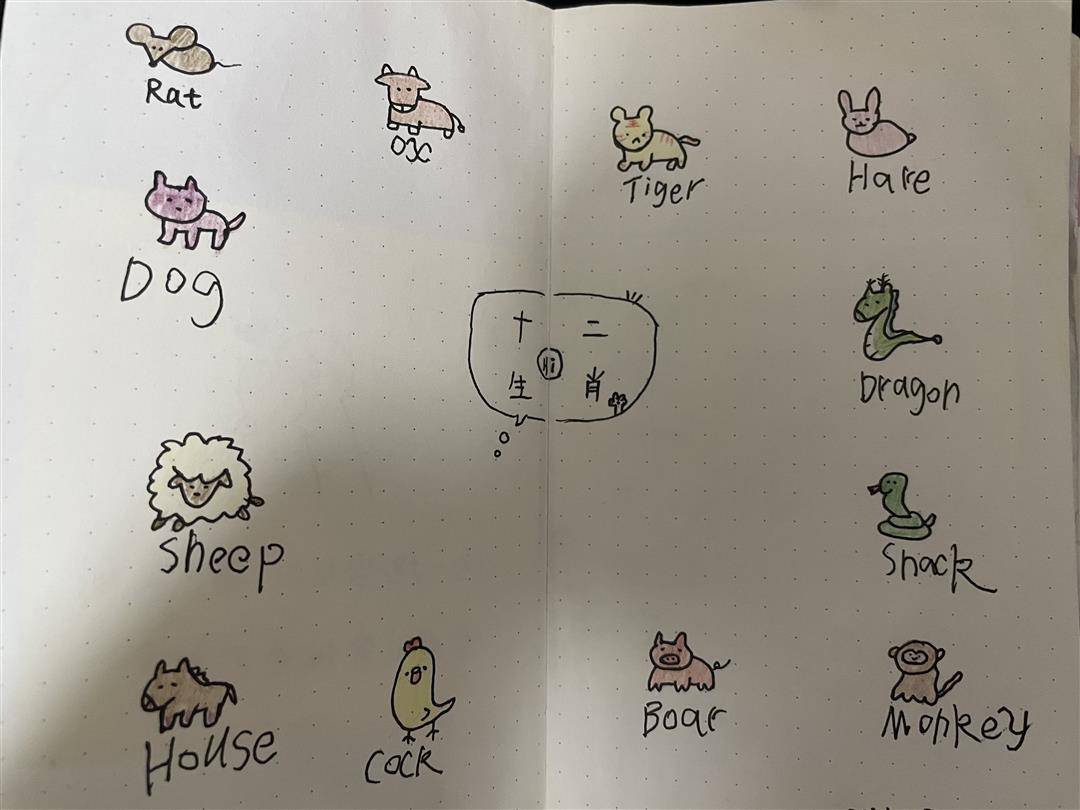 Rat
OX
Tiger
Hare
Dog
十 二
Hi
生 肖
Dragon
Sheep
Snack
House
Cock
Boar
Monkey